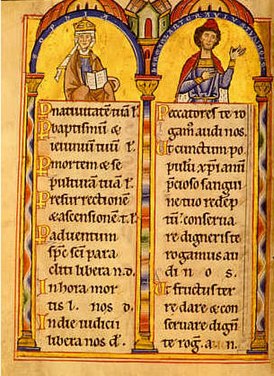 P nativitatē tuā l̄.
P baptismū &
ieiuniū tuū l̄.
P mortem & se
pulturā tuā l̄.
P resurrectionē
& ascensionē t. l̄.
P adventum
sp̄c sēi para
cliti libera n. d.
In hora mor
tis l. nos d.
In die iudicii
libera nos d̄.
Peccatores te ro
gam̄ audi nos.
Ut cunctum po
pulū xpianū
p̄cioso sangui
ne tuo redēp
tū conserva
re digneris te
rogamus au
di n o s.
Ut fructus ter
re dare & con
servare dign̄
te rog. a. n.